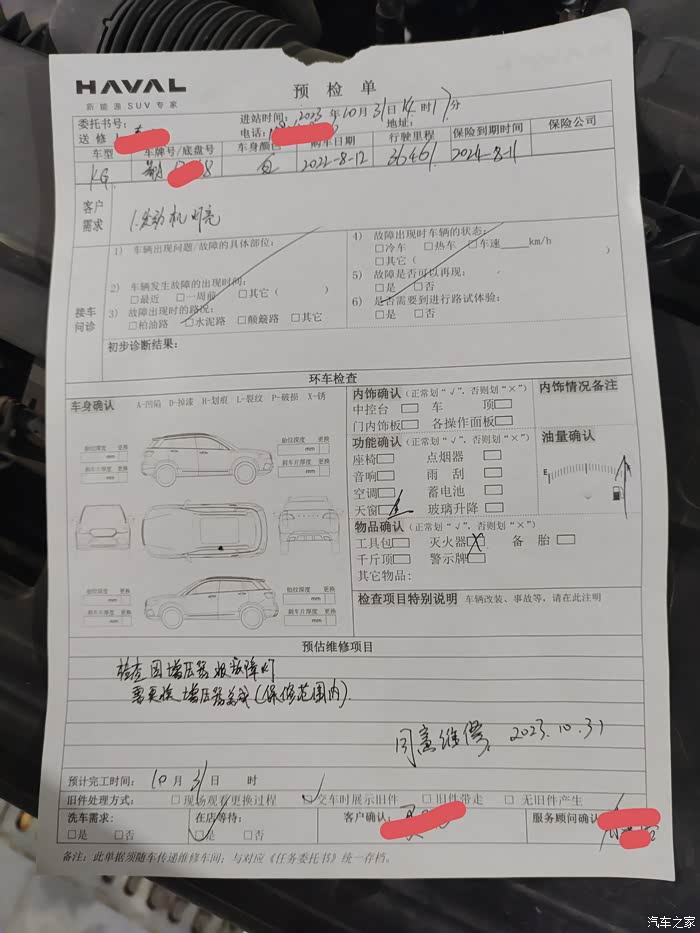 HAVAL
新能源 SUV 专家
预 检 单
委托书号:
进站时间: 2023 年 10 月 31 日 14 时 17 分
送 修 人 电话: 地址:
车型 车牌号/底盘号 车身颜色 购车日期 行驶里程 保险到期时间 保险公司
2022-8-12 36461 2024-8-11
客户需求
1.发动机灯亮
接车问诊
1) 车辆出现问题/故障的具体部位:
2) 车辆发生故障的出现时间:
□最近 □一周前 □其它 ( )
3) 故障出现时的路况:
□柏油路 □水泥路 □颠簸路 □其它
4) 故障出现时车辆的状态:
□冷车 □热车 □车速 km/h
□其它 ( )
5) 故障是否可以再现:
□是 □否
6) 是否需要到进行路试体验:
□是 □否
初步诊断结果:
环车检查
车身确认 A-凹陷 D-掉漆 H-划痕 L-裂纹 P-破损 X-锈
胎纹深度 更换
mm
刹车片厚度 更换
mm
胎纹深度 更换
mm
刹车片厚度 更换
mm
胎纹深度 更换
mm
刹车片厚度 更换
mm
胎纹深度 更换
mm
刹车片厚度 更换
mm
内饰确认 (正常划“√”，否则划“×”)
中控台 □ 车 顶 □
门内饰板 □ 各操作面板 □
内饰情况备注
功能确认 (正常划“√”，否则划“×”)
座椅 □ 点烟器 □
音响 □ 雨 刮 □
空调 □ 蓄电池 □
天窗 □ 玻璃升降 □
油量确认
E
物品确认 (正常划“√”，否则划“×”)
工具包 □ 灭火器 □ 备 胎 □
千斤顶 □ 警示牌 □
其它物品:
检查项目特别说明 车辆改装、事故等，请在此注明
预估维修项目
检查因增压器报故障灯
需更换增压器总成(保修范围内).
同意维修. 2023.10.31
预计完工时间: 10 月 31 日 时
旧件处理方式: □ 现场观看更换过程 □ 交车时展示旧件 □ 旧件带走 □ 无旧件产生
洗车需求: □是 □否
在店等待: □是 □否
客户确认:
服务顾问确认:
备注: 此单据须随车传递维修车间; 与对应《任务委托书》统一存档。
汽车之家